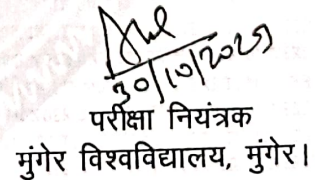 30/10/2025
परीक्षा नियंत्रक
मुंगेर विश्वविद्यालय, मुंगेर।